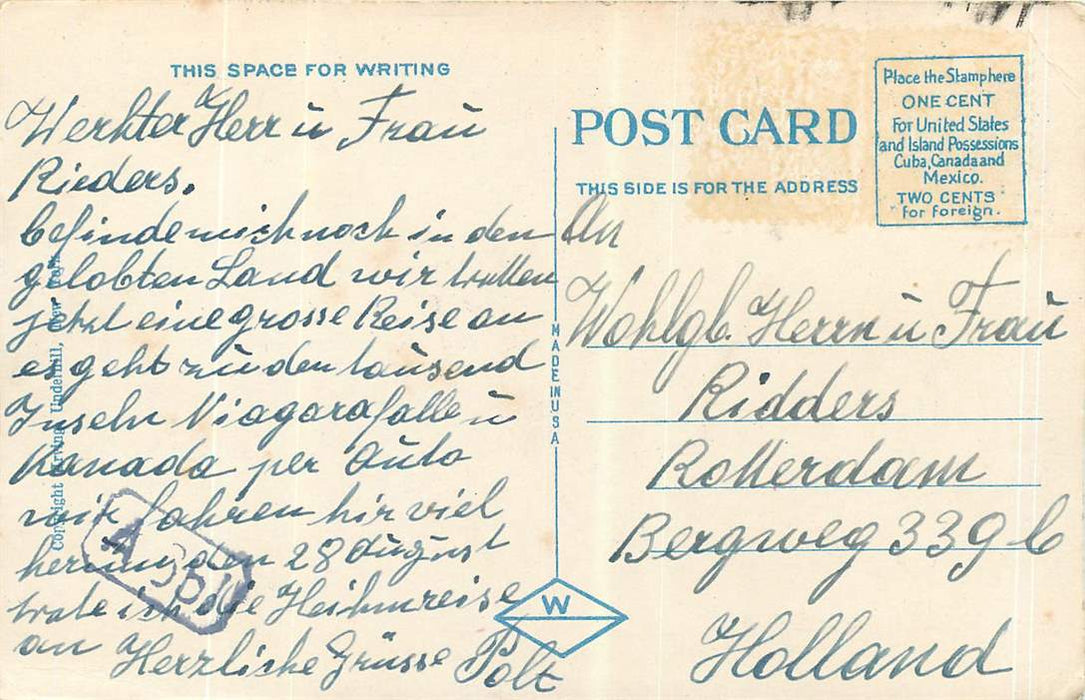 THIS SPACE FOR WRITING
Werhter Herr u Frau
Rieders.
befinde mich noch in den
gelobten Land wir tretten
jetzt eine grosse Reise an
es geht zu den tausend
Inseln Niagarafalle u
Kanada per Auto
wir fahren hir viel
herum den 28 August
trate ich die Heihmreise
an Herzliche Grüsse Polt
Copyright Irving Underhill, New York
MADE IN USA
W
POST CARD
THIS SIDE IS FOR THE ADDRESS
Place the Stamp here
ONE CENT
For United States
and Island Possessions
Cuba, Canada and
Mexico.
TWO CENTS
for foreign.
An
Wohlgb. Herrn u Frau
Ridders
Rotterdam
Bergweg 339 b
Holland